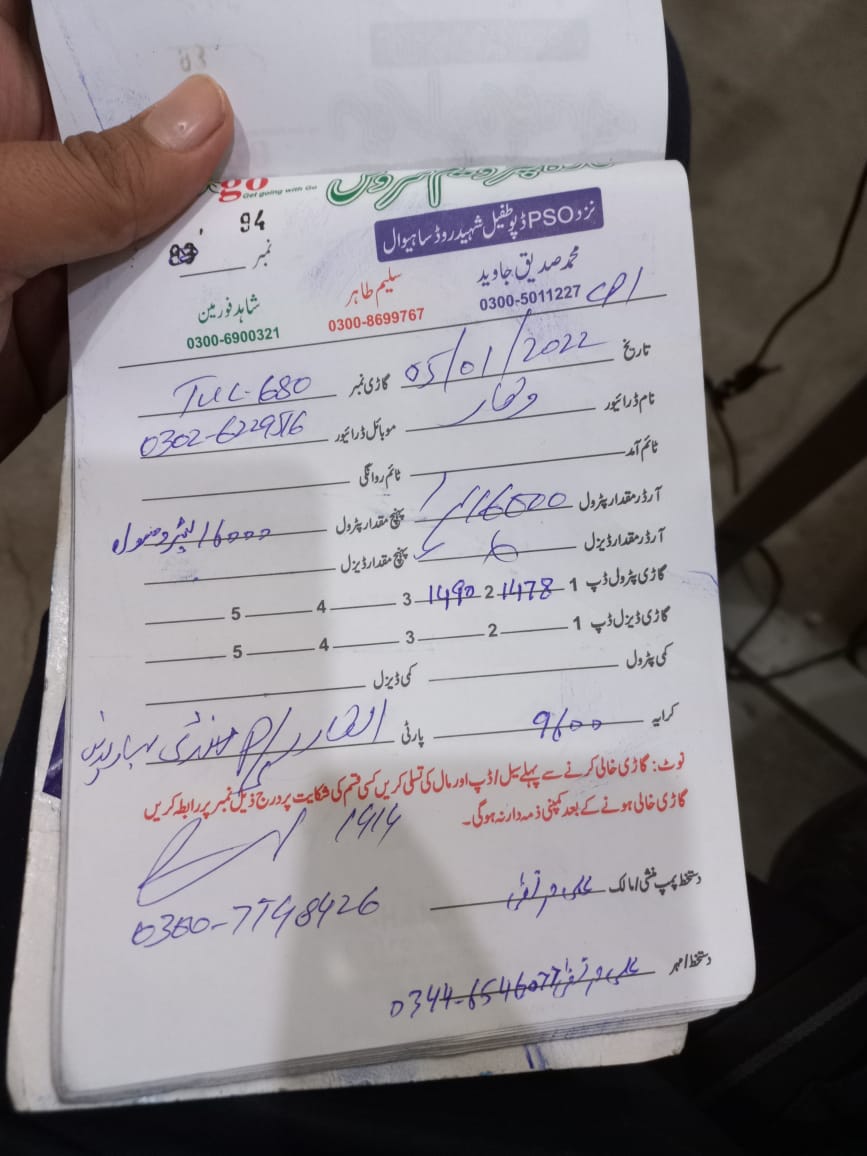 go
Get going with Go
نزد PSO ڈپو طفیل شہید روڈ ساہیوال
94
نمبر
محمد صدیق جاوید سلیم طاہر شاہد فورمین
0300-5011227 0300-8699767 0300-6900321
تاریخ 05/01/2022 گاڑی نمبر TUL-680
نام ڈرائیور وقار موبائل ڈرائیور
ٹائم آمد ٹائم روانگی
آرڈر مقدار پٹرول 16000 پہنچ مقدار پٹرول 16000 لیٹر وصول
آرڈر مقدار ڈیزل پہنچ مقدار ڈیزل
گاڑی پٹرول ڈپ 1 1478 2 1490 3 4 5
گاڑی ڈیزل ڈپ 1 2 3 4 5
کمی پٹرول کمی ڈیزل
کرایہ 9600 پارٹی
نوٹ: گاڑی خالی کرنے سے پہلے سیل / ڈپ اور مال کی تسلی کریں کسی قسم کی شکایت پر درج ذیل نمبر پر رابطہ کریں
گاڑی خالی ہونے کے بعد کمپنی ذمہ دار نہ ہوگی۔
1914
0300-7748426
دستخط پمپ منشی / مالک علی مرتضیٰ
دستخط / مہر علی مرتضیٰ 0344-6546077